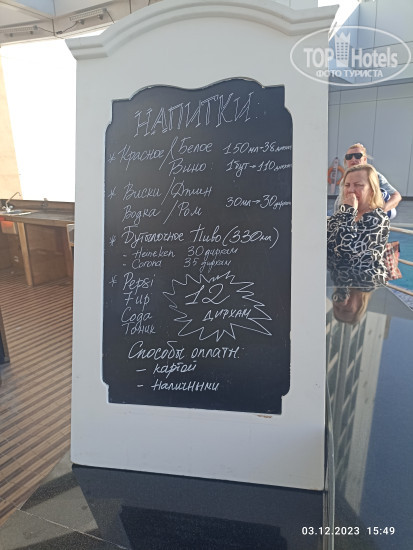 TOP Hotels
ФОТО ТУРИСТА
НАПИТКИ:
* Красное / Белое 150мл-38
Вино 1бут → 110
* Виски / Джин
Водка / Ром 30мл → 30
* Бутылочное Пиво (330мл)
- Heineken 30 дирхам
- Corona 35 дирхам
* Pepsi
7up
Сода
Тоник
12
ДИРХАМ
Способы оплаты:
- картой
- Наличными
03.12.2023 15:49